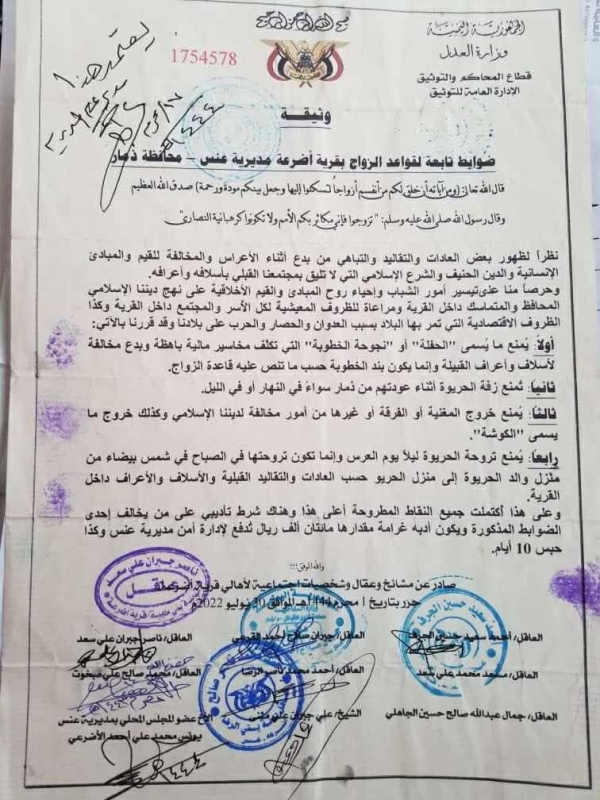 الجمهورية اليمنية
وزارة العدل
قطاع المحاكم والتوثيق
الإدارة العامة للتوثيق
1754578
يعتمد هذا
وثيقـــــة
ضوابط تابعة لقواعد الزواج بقرية أضرعة مديرية عنس – محافظة ذمار
قال الله تعالى (ومن آياته أن خلق لكم من أنفسكم أزواجاً لتسكنوا إليها وجعل بينكم مودة ورحمة) صدق الله العظيم
وقال رسول الله صلى الله عليه وسلم: "تزوجوا فإني مكاثر بكم الأمم ولا تكونوا كرهبانية النصارى
نظراً لظهور بعض العادات والتقاليد والتباهي من بدع أثناء الأعراس والمخالفة للقيم والمبادئ
الإنسانية والدين الحنيف والشرع الإسلامي التي لا تليق بمجتمعنا القبلي بأسلافه وأعرافه.
وحرصاً منا على تيسير أمور الشباب وإحياء روح المبادئ والقيم الأخلاقية على نهج ديننا الإسلامي
المحافظ والمتماسك داخل القرية ومراعاة للظروف المعيشية لكل الأسر والمجتمع داخل القرية وكذا
الظروف الاقتصادية التي تمر بها البلاد بسبب العدوان والحصار والحرب على بلادنا وقد قررنا بالآتي:
أولاً: يُمنع ما يُسمى "الحفلة" أو "نجوحة الخطوبة" التي تكلف مخاسير مالية باهظة وبدع مخالفة
لأسلاف وأعراف القبيلة وإنما يكون بند الخطوبة حسب ما تنص عليه قاعدة الزواج.
ثانياً: تُمنع زفة الحريوة أثناء عودتهم من ذمار سواءً في النهار أو في الليل.
ثالثاً: يُمنع خروج المغنية أو الفرقة أو غيرها من أمور مخالفة لديننا الإسلامي وكذلك خروج ما
يسمى "الكوشة".
رابعاً: يُمنع تروحة الحريوة ليلاً يوم العرس وإنما تكون تروحتها في الصباح في شمس بيضاء من
منزل والد الحريوة إلى منزل الحريو حسب العادات والتقاليد القبلية والأسلاف والأعراف داخل
القرية.
وعلى هذا أكتملت جميع النقاط المطروحة أعلى هذا وهناك شرط تأديبي على من يخالف إحدى
الضوابط المذكورة ويكون أدبه غرامة مقدارها مائتان ألف ريال تُدفع لإدارة أمن مديرية عنس وكذا
حبس 10 أيام.
والله الموفق،،،
صادر عن مشائخ وعقال وشخصيات اجتماعية لأهالي قرية أضرعة
حرر بتاريخ 1 محرم 1444هـ الموافق 30 يوليو 2022م
العاقل/ أحمد سعيد حسين الجرف
العاقل/ جبران صالح أحمد القرعي
العاقل/ ناصر جبران علي سعد
العاقل/ مسعد محمد علي سعد
العاقل/ أحمد محمد ناصر الرضا
العاقل/ محمد صالح علي مبخوت
العاقل/ جمال عبدالله صالح حسين الجاهلي
الشيخ/ علي جبران علي مثنى
عضو المجلس المحلي بمديرية عنس
يونس محمد علي أحمد الأضرعي
ناصر جبران علي سعد
عاقل